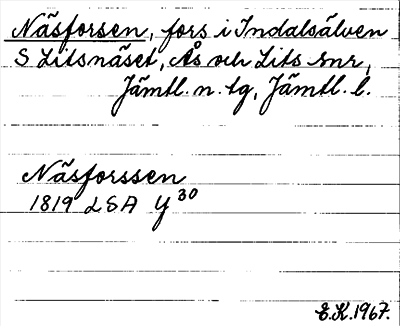 Näsforsen, fors i Indalsälven
S Litsnäset, Ås och Lits snr,
Jämtl. n. tg, Jämtl. l.
Näsforssen
1819 LSA Y 30
E.K.1967.